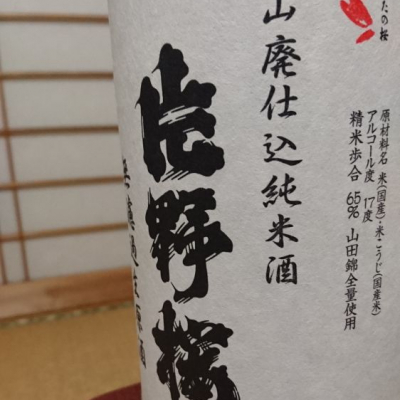 たの桜
原材料名 米(国産)・米こうじ(国産米)
アルコール度 17度
精米歩合 65% 山田錦全量使用
山廃仕込純米酒
片野桜
無濾過生原酒